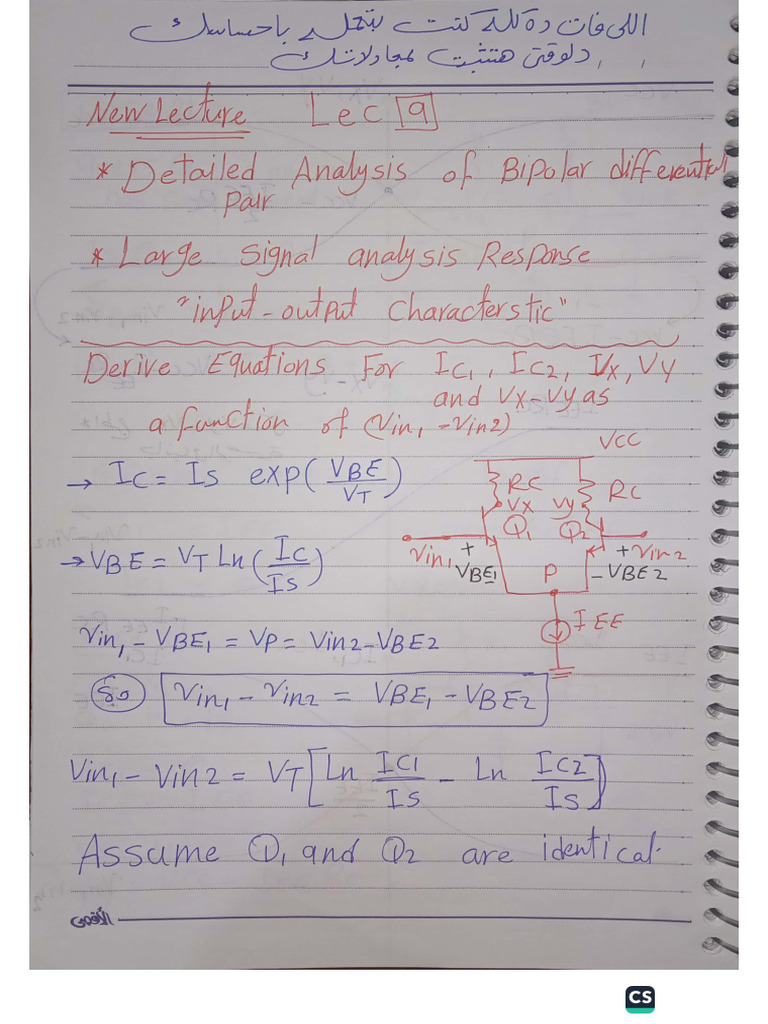 اللي فات ده كله كنت بتحله باحساسك
دلوقتي هتثبت محاولاتك
New Lecture Lec 9
* Detailed Analysis of Bipolar differential
pair
* Large Signal analysis Response
"input-output Characterstic"
Derive Equations For IC1, IC2, Vx, Vy
and Vx-Vy as
a function of (Vin1 - Vin2)
VCC
→ IC = Is exp(VBE/VT)
RC RC
Vx Vy
Q1 Q2
Vin1 + VBE1 P + Vin2 - VBE2
→ VBE = VT Ln(IC/Is)
IEE
Vin1 - VBE1 = VP = Vin2 - VBE2
So Vin1 - Vin2 = VBE1 - VBE2
Vin1 - Vin2 = VT[Ln IC1/Is - Ln IC2/Is]
Assume Q1 and Q2 are identical.
الأقصى
CS